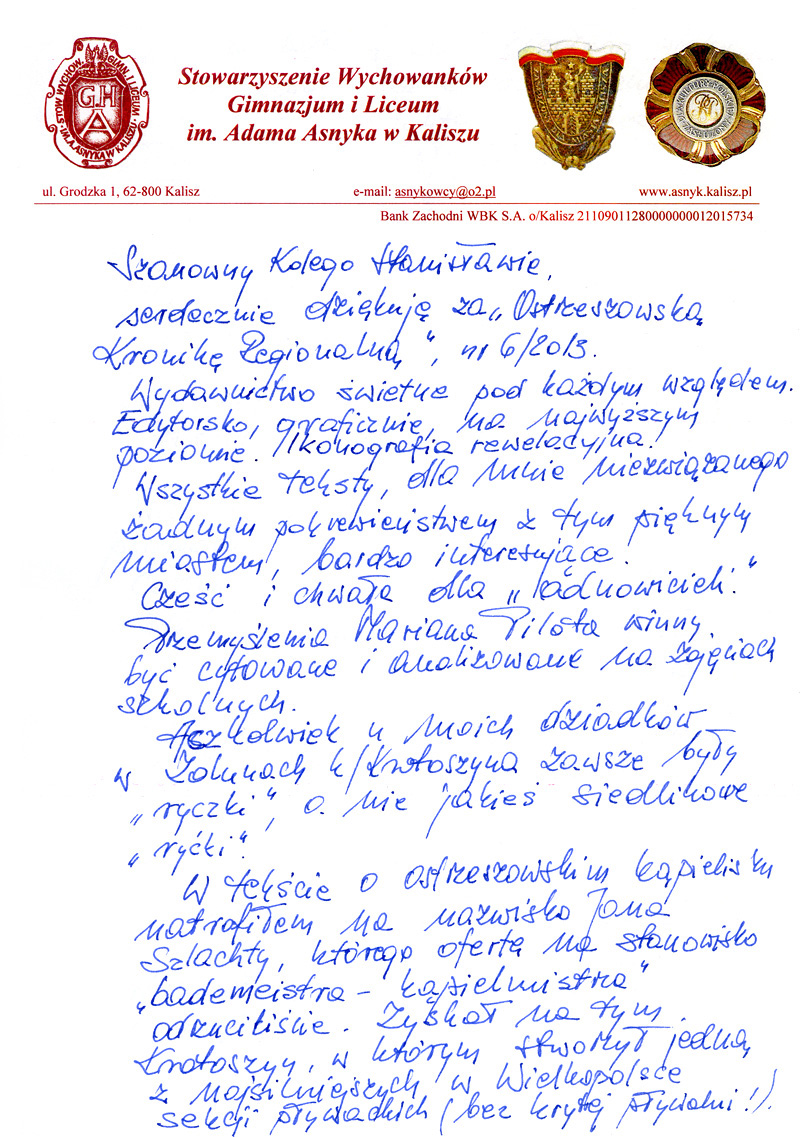 STOW. WYCHOW. GIMN. I LICEUM
IM. A. ASNYKA W KALISZU
G.H
A
Stowarzyszenie Wychowanków
Gimnazjum i Liceum
im. Adama Asnyka w Kaliszu
ul. Grodzka 1, 62-800 Kalisz
e-mail: asnykowcy@o2.pl
www.asnyk.kalisz.pl
Bank Zachodni WBK S.A. o/Kalisz 21109011280000000012015734
Szanowny Kolego Stanisławie,
serdecznie dziękuję za „Ostrzeszowską
Kronikę Regionalną”, nr 6/2013.
Wydawnictwo świetne pod każdym względem.
Edytorsko, graficznie, na najwyższym
poziomie. Ikonografia rewelacyjna!
Wszystkie teksty, dla mnie niezwiązanego
żadnym pokrewieństwem z tym pięknym
miastem, bardzo interesujące.
Cześć i chwała dla
Przemyślenia Mariana Pilota winny
być cytowane i analizowane na zajęciach
szkolnych.
Aczkolwiek u moich dziadków
w k/Krotoszyna zawsze były
„ryczki”, a nie jakieś siedlikowe
„ryćki”.
W tekście o ostrzeszowskim kąpielisku
natrafiłem na nazwisko Jana
Szlachty, którego ofertę na stanowisko
„bademeistra - kąpielmistrza”
odrzuciliście. Zyskał na tym
Krotoszyn, w którym stworzył jedną
z najsilniejszych w Wielkopolsce
sekcji pływackich (bez krytej pływalni!).